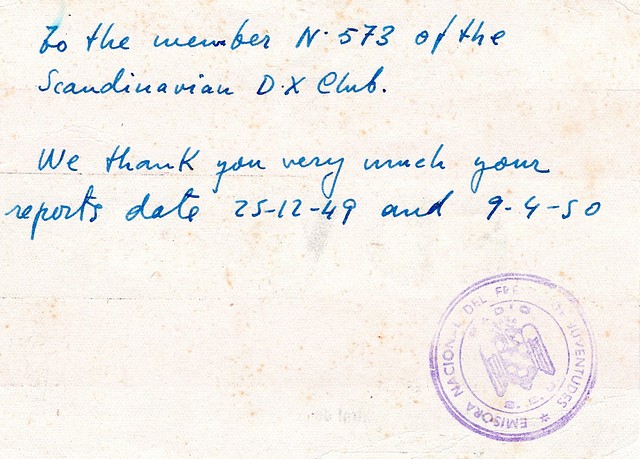 To the member N· 573 of the
Scandinavian D·X Club.
We thank you very much your
reports date 25-12-49 and 9-4-50
EMISORA NACIONAL DEL FRE DE JUVENTUDES *
RADIO